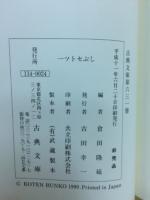 古典文庫第六三一冊
平成十一年六月二十日印刷発行
非売品
一ツトセぶし
編者 倉田隆延
発行者 吉田幸一
印刷者 共立印刷株式会社
製本者 (有)武蔵製本
発行所
114-0024
東京都北区西ケ原
古典文庫
© KOTEN BUNKO 1999 Printed in Japan